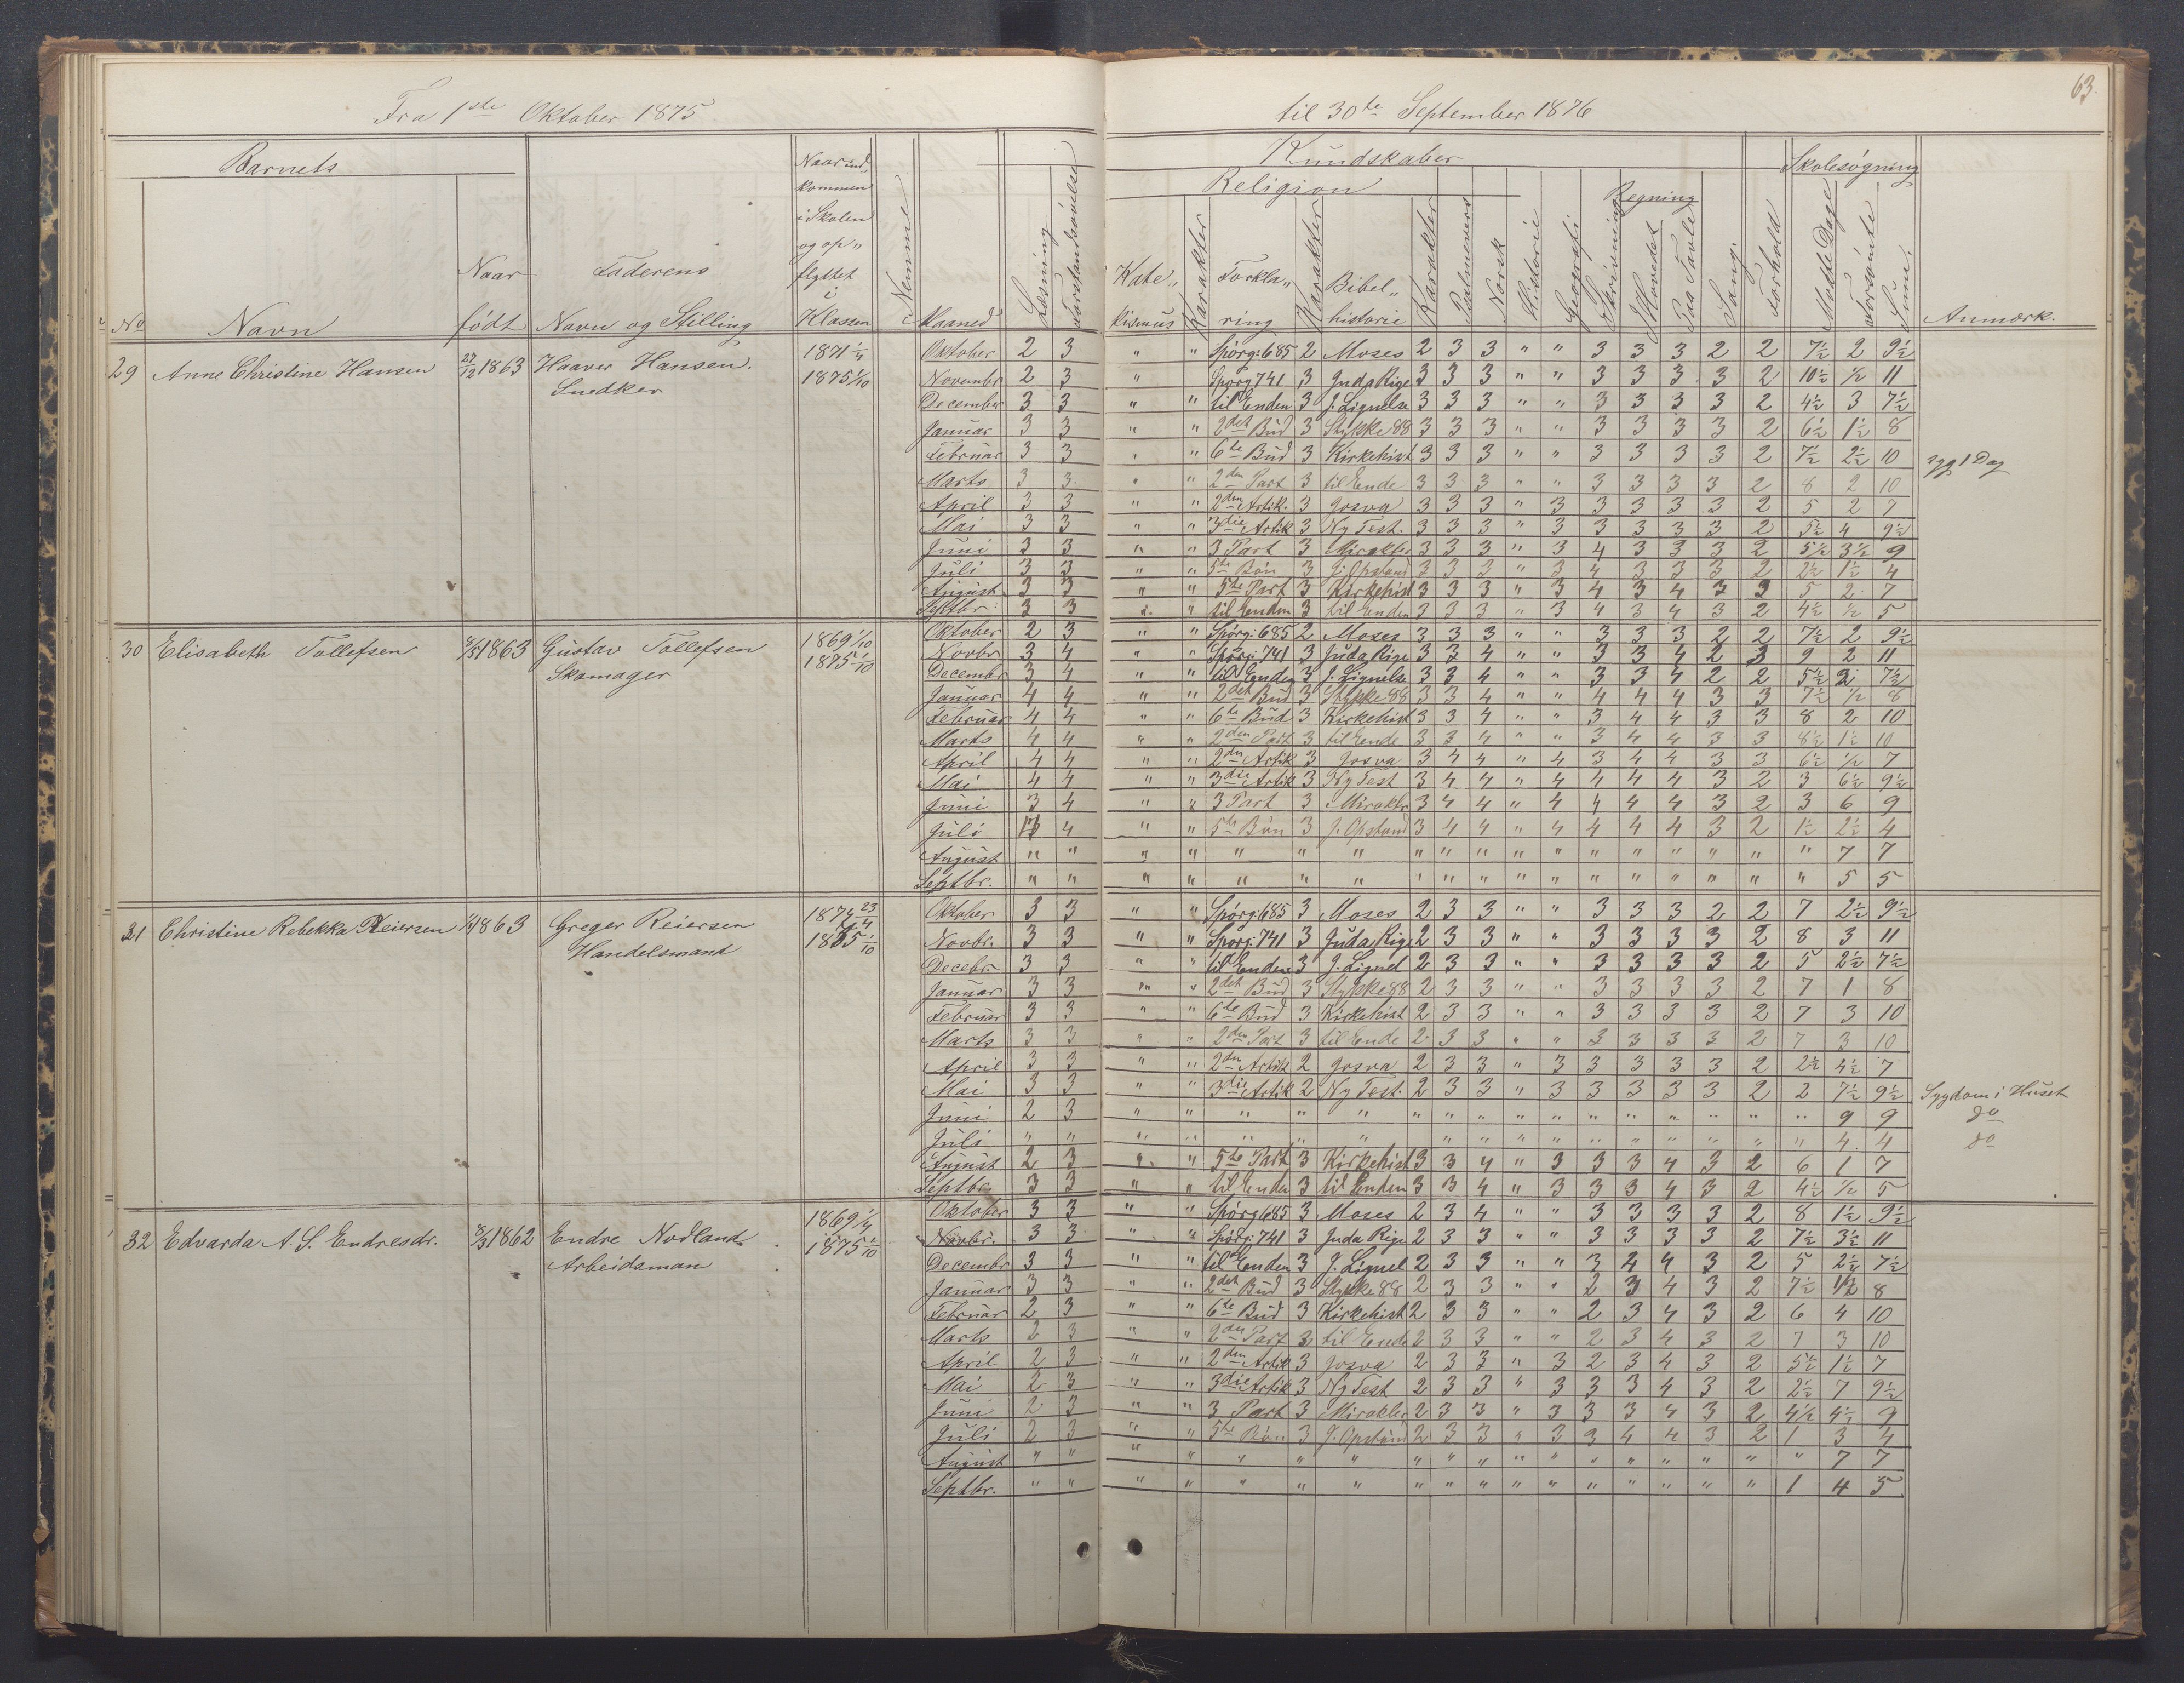 Fra 1ste Oktober 1875 til 30te September 1876 63.
Barnets Kundskaber Skolesøgning
Religion Regning
No Navn Naar født Faderens Navn og Stilling Naar ind„ kommen i Skolen og op„ flyttet i Klassen Nemme Maaned Læsning Forstandsøvelse Kate„ kismus Karakter Forkla„ ring Karakter Bibel„ historie Karakter Psalmevers Norsk Historie Geografi Skrivning I Hovedet Paa Tavle Sang. Forhold Mødte Dage Forsømte Sum. Anmærk.
29 Anne Christine Hansen 27/12 1863 Haaver Hansen. 1871 1/4 Oktober 2 3 „ „ Spörg: 685 2 Moses 2 3 3 „ „ 3 3 3 2 2 7½ 2 9½
Snedker 1875 1/10 Novembr 2 3 „ „ Spörg 741 3 Juda Rige 3 3 3 „ „ 3 3 3 3 2 10½ ½ 11
December 3 3 „ „ til Enden 3 J. Lignelse 3 3 3 „ „ 3 3 3 3 2 4½ 3 7½
Januar 3 3 „ „ 2det Bud 3 Stykke 88 3 3 3 „ „ 3 3 3 3 2 6½ 1½ 8
Februar 3 3 „ „ 6te Bud 3 Kirkehist 3 3 3 „ „ 3 3 3 3 2 7½ 2½ 10 syg 1 Dag
Marts 3 3 „ „ 2den Part 3 til Ende 3 3 3 „ „ 3 3 3 3 2 8 2 10
April 3 3 „ „ 2den Artik. 3 Josva 3 3 3 „ 3 3 3 3 3 2 5 2 7
Mai 3 3 „ „ 3die Artik 3 Ny Test. 3 3 3 „ 3 3 3 3 3 2 5½ 4 9½
Juni 3 3 „ „ 3 Part 3 Mirakler 3 3 3 „ 3 4 3 3 3 2 5½ 3½ 9
Juli 3 3 „ „ 5te Bön 3 J. Opstand 3 3 3 „ 3 4 3 3 3 2 2½ 1½ 4
August 3 3 „ „ 5te Part 3 Kirkehist 3 3 3 „ 3 4 3 4 3 3 5 2 7
Septbr. 3 3 „ „ til Enden 3 til Enden 3 3 3 „ 3 4 3 4 3 2 4½ ½ 5
30 Elisabeth Tollefsen 1863 Gustav Tollefsen 1869 1/10 Oktober 2 3 „ „ Spörg: 685 2 Moses 3 3 3 „ „ 3 3 3 2 2 7½ 2 9½
Skomager 1875 1/10 Novbr 3 4 „ „ Spörg: 741 3 Juda Rige 3 3 4 „ „ 3 3 4 2 3 9 2 11
Decembr 3 4 „ „ til Enden 3 J. Lignelse 3 3 4 „ „ 3 3 4 2 2 5½ 2 7½
Januar 4 4 „ „ 2det Bud 3 Stykke 88 3 3 4 „ „ 4 4 4 3 3 7½ ½ 8
Februar 4 4 „ „ 6te Bud 3 Kirkehist 3 3 4 „ „ 3 4 4 3 3 8 2 10
Marts 4 4 „ „ 2den Part 3 til Ende 3 3 4 „ „ 3 4 4 3 3 8½ 1½ 10
April 4 4 „ „ 2den Artik 3 Josva 3 4 4 „ 4 3 4 4 3 3 6½ ½ 7
Mai 4 4 „ „ 3die Artik 3 Ny Test 3 4 4 „ 4 4 4 4 3 2 3 6½ 9½
Juni 3 4 „ „ 3 Part 3 Mirakler 3 4 4 „ 4 4 4 4 3 2 3 6 9
Juli 4 „ „ 5te Bön 3 J. Opstand 3 4 4 „ 4 4 4 4 3 2 1½ 2½ 4
August „ „ „ „ „ „ „ „ „ „ „ „ „ „ „ „ „ „ 7 7
Septbr. „ „ „ „ „ „ „ „ „ „ „ „ „ „ „ „ „ „ 5 5
31 Christine Rebekka Reiersen 1863 Greger Reiersen 1874 23/4 Oktober 3 3 „ „ Spörg: 685 3 Moses 2 3 3 „ „ 3 3 3 2 2 7 2½ 9½
Handelsmand 1875 1/10 Novbr. 3 3 „ „ Spörg: 741 3 Juda Rige 2 3 3 „ „ 3 3 3 3 2 8 3 11
Decebr. 3 3 „ „ til Enden 3 J. Lignel 2 3 3 „ „ 3 3 3 3 2 5 2½ 7½
Januar 3 3 „ „ 2det Bud 3 Stykke 88 2 3 3 „ „ 3 3 3 3 2 7 1 8
Februar 3 3 „ „ 6te Bud 3 Kirkehist 2 3 3 „ „ 3 3 3 3 2 7 3 10
Marts 3 3 „ „ 2den Part 3 til Ende 2 3 3 „ „ 3 3 3 3 2 7 3 10
April 3 3 „ „ 2den Artik 2 Josva 2 3 3 „ 3 3 3 3 3 2 2½ 4½ 7
Mai 3 3 „ „ 3die Artik 2 Ny Test. 2 3 3 „ 3 3 3 3 3 2 2 7½ 9½ Sygdom i Huset
Juni 2 3 „ „ „ „ „ „ „ „ „ „ „ „ „ „ „ „ 9 9 do
Juli „ „ „ „ „ „ „ „ „ „ „ „ „ „ „ „ „ „ 4 4 do
August 2 3 „ „ 5te Part 3 Kirkehist 3 3 4 „ 3 3 3 4 3 2 6 1 7
Septbr 3 3 „ „ til Enden 3 til Enden 3 3 4 „ 3 3 3 4 3 2 4½ ½ 5
32 Edvarda A. S. Endresdr. 1862 Endre Nodland 1869 1/4 Oktober 3 3 „ „ Spörg 685 3 Moses 2 3 4 „ „ 3 3 3 3 2 8 1½ 9½
Arbeidsman 1875 1/10 Novbr. 3 3 „ „ Spörg: 741 3 Juda Rige 2 3 3 „ „ 3 3 3 3 2 7½ 3½ 11
Decembr 3 3 „ „ til Enden 3 J. Lignel 2 3 3 „ „ 3 4 4 3 2 5 2½ 7½
Januar 3 3 „ „ 2det Bud 3 Stykke 88 2 3 3 „ „ 2 3 4 3 2 7½ ½ 8
Februar 2 3 „ „ 6te Bud 3 Kirkehist 2 3 3 „ „ 2 3 4 3 2 6 4 10
Marts 2 3 „ „ 2den Part 3 til Ende 2 3 3 „ „ 2 3 4 3 2 7 3 10
April 2 3 „ „ 2den Artik 3 Josva 2 3 3 „ 3 2 3 4 3 2 5½ 1½ 7
Mai 2 3 „ „ 3die Artik 3 Ny Test 2 3 3 „ 3 3 3 4 3 2 2½ 7 9½
Juni 2 3 „ „ 3 Part 3 Mirakler 2 3 3 „ 3 3 3 4 3 2 4½ 4½ 9
Juli 2 3 „ „ 5te Bön 3 J. Opstand 2 3 3 „ 3 3 4 4 3 2 1 3 4
August „ „ „ „ „ „ „ „ „ „ „ „ „ „ „ „ „ „ 7 7
Septbr. „ „ „ „ „ „ „ „ „ „ „ „ „ „ „ „ „ 1 4 5